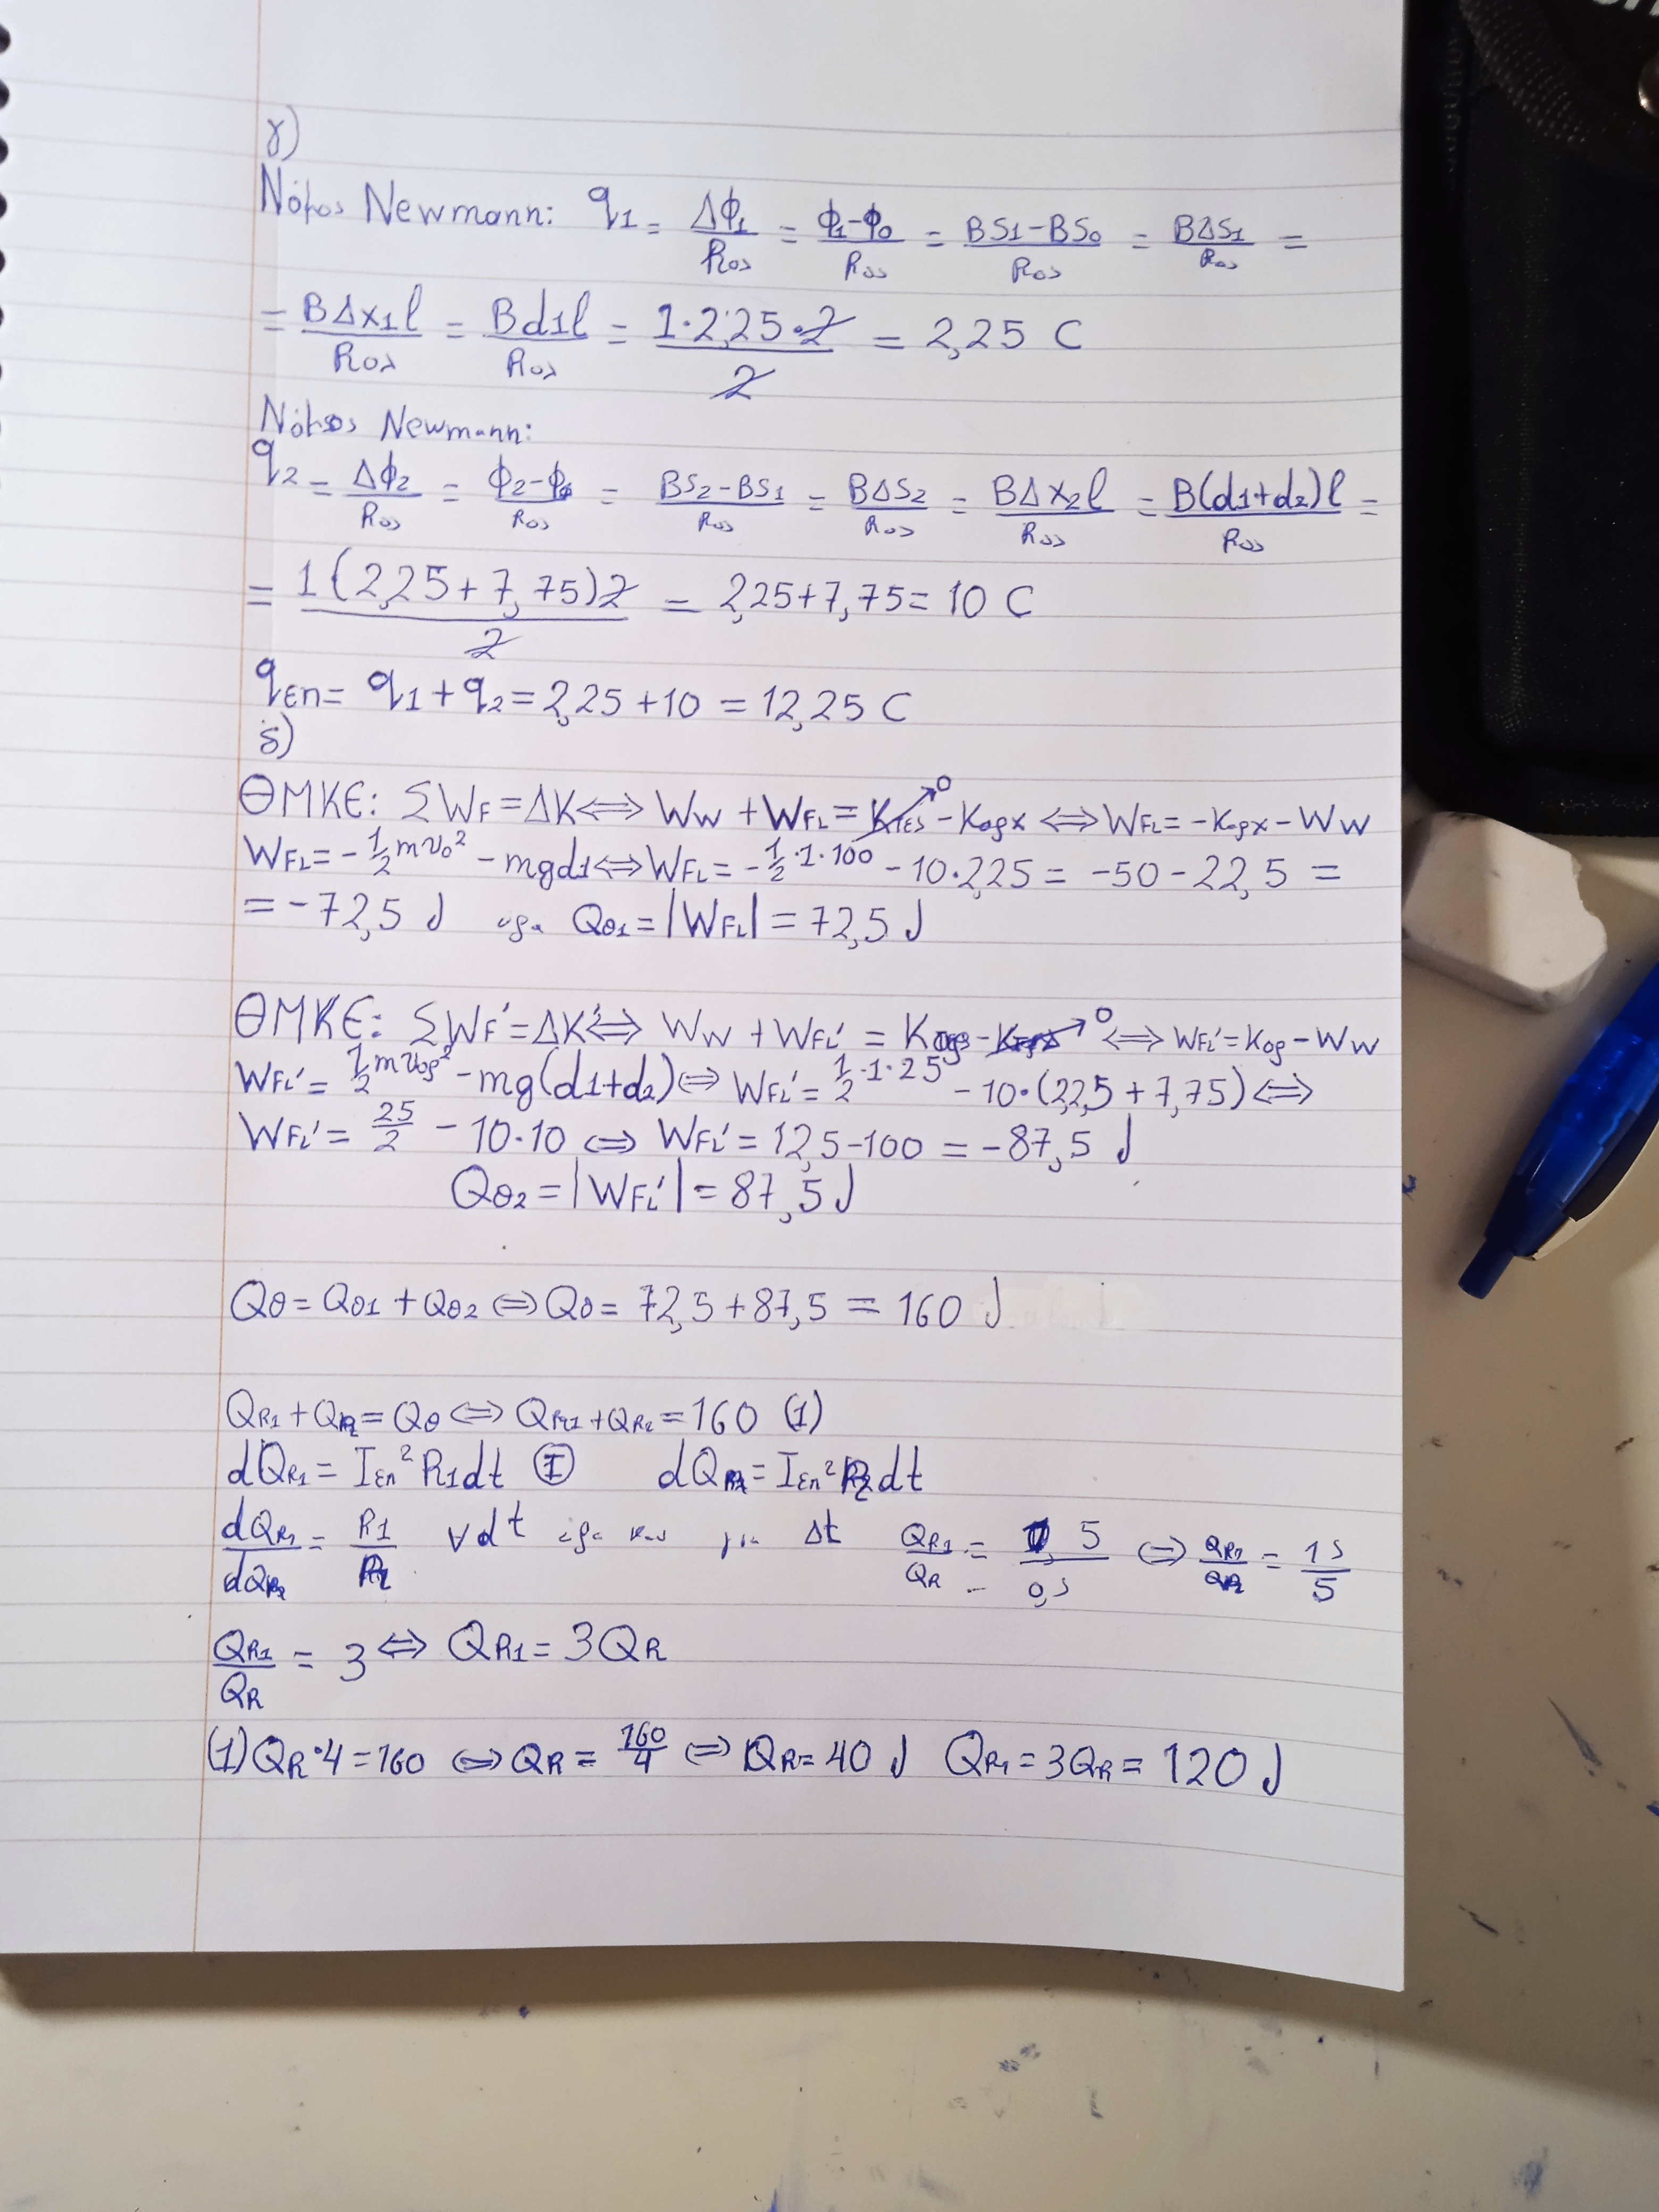 γ)
Νόμος Newmann: q1 = ΔΦ1/Rολ = Φ1-Φ0/Rολ = BS1-BS0/Rολ = BΔS1/Rολ =
= BΔx1l/Rολ = Bd1l/Rολ = 1·2,25·2/2 = 2,25 C
Νόμος Newmann:
q2 = ΔΦ2/Rολ = Φ2-Φ1/Rολ = BS2-BS1/Rολ = BΔS2/Rολ = BΔx2l/Rολ = B(d1+d2)l/Rολ =
= 1(2,25+7,75)2/2 = 2,25+7,75 = 10 C
qεπ = q1+q2 = 2,25+10 = 12,25 C
δ)
ΘΜΚΕ: ΣWF = ΔK ⇔ Ww + WFL = Kτελ - Kαρχ ⇔ WFL = -Kαρχ - Ww
0
WFL = -1/2 mυ0² - mgd1 ⇔ WFL = -1/2·1·100 - 10·2,25 = -50-22,5 =
= -72,5 J αρα Qθ1 = |WFL| = 72,5 J
ΘΜΚΕ: ΣWF' = ΔK' ⇔ Ww + WFL' = Kορ - 0 ⇔ WFL' = Kορ - Ww
WFL' = 1/2 mυορ² - mg(d1+d2) ⇔ WFL' = 1/2·1·25 - 10·(2,25+7,75) ⇔
WFL' = 25/2 - 10·10 ⇔ WFL' = 12,5-100 = -87,5 J
Qθ2 = |WFL'| = 87,5 J
Qθ = Qθ1 + Qθ2 ⇔ Qθ = 72,5+87,5 = 160 J
QR1+QR2 = Qθ ⇔ QR1+QR2 = 160 (1)
dQR1 = Iεπ²R1dt Ⓘ dQR2 = Iεπ²R2dt
dQR1/dQR2 = R1/R2 ∀dt αρα και για Δt QR1/QR = 1,5/0,5 ⇔ QR1/QR2 = 15/5
QR1/QR = 3 ⇔ QR1 = 3QR
(1) QR·4 = 160 ⇔ QR = 160/4 ⇔ QR = 40 J QR1 = 3QR = 120 J